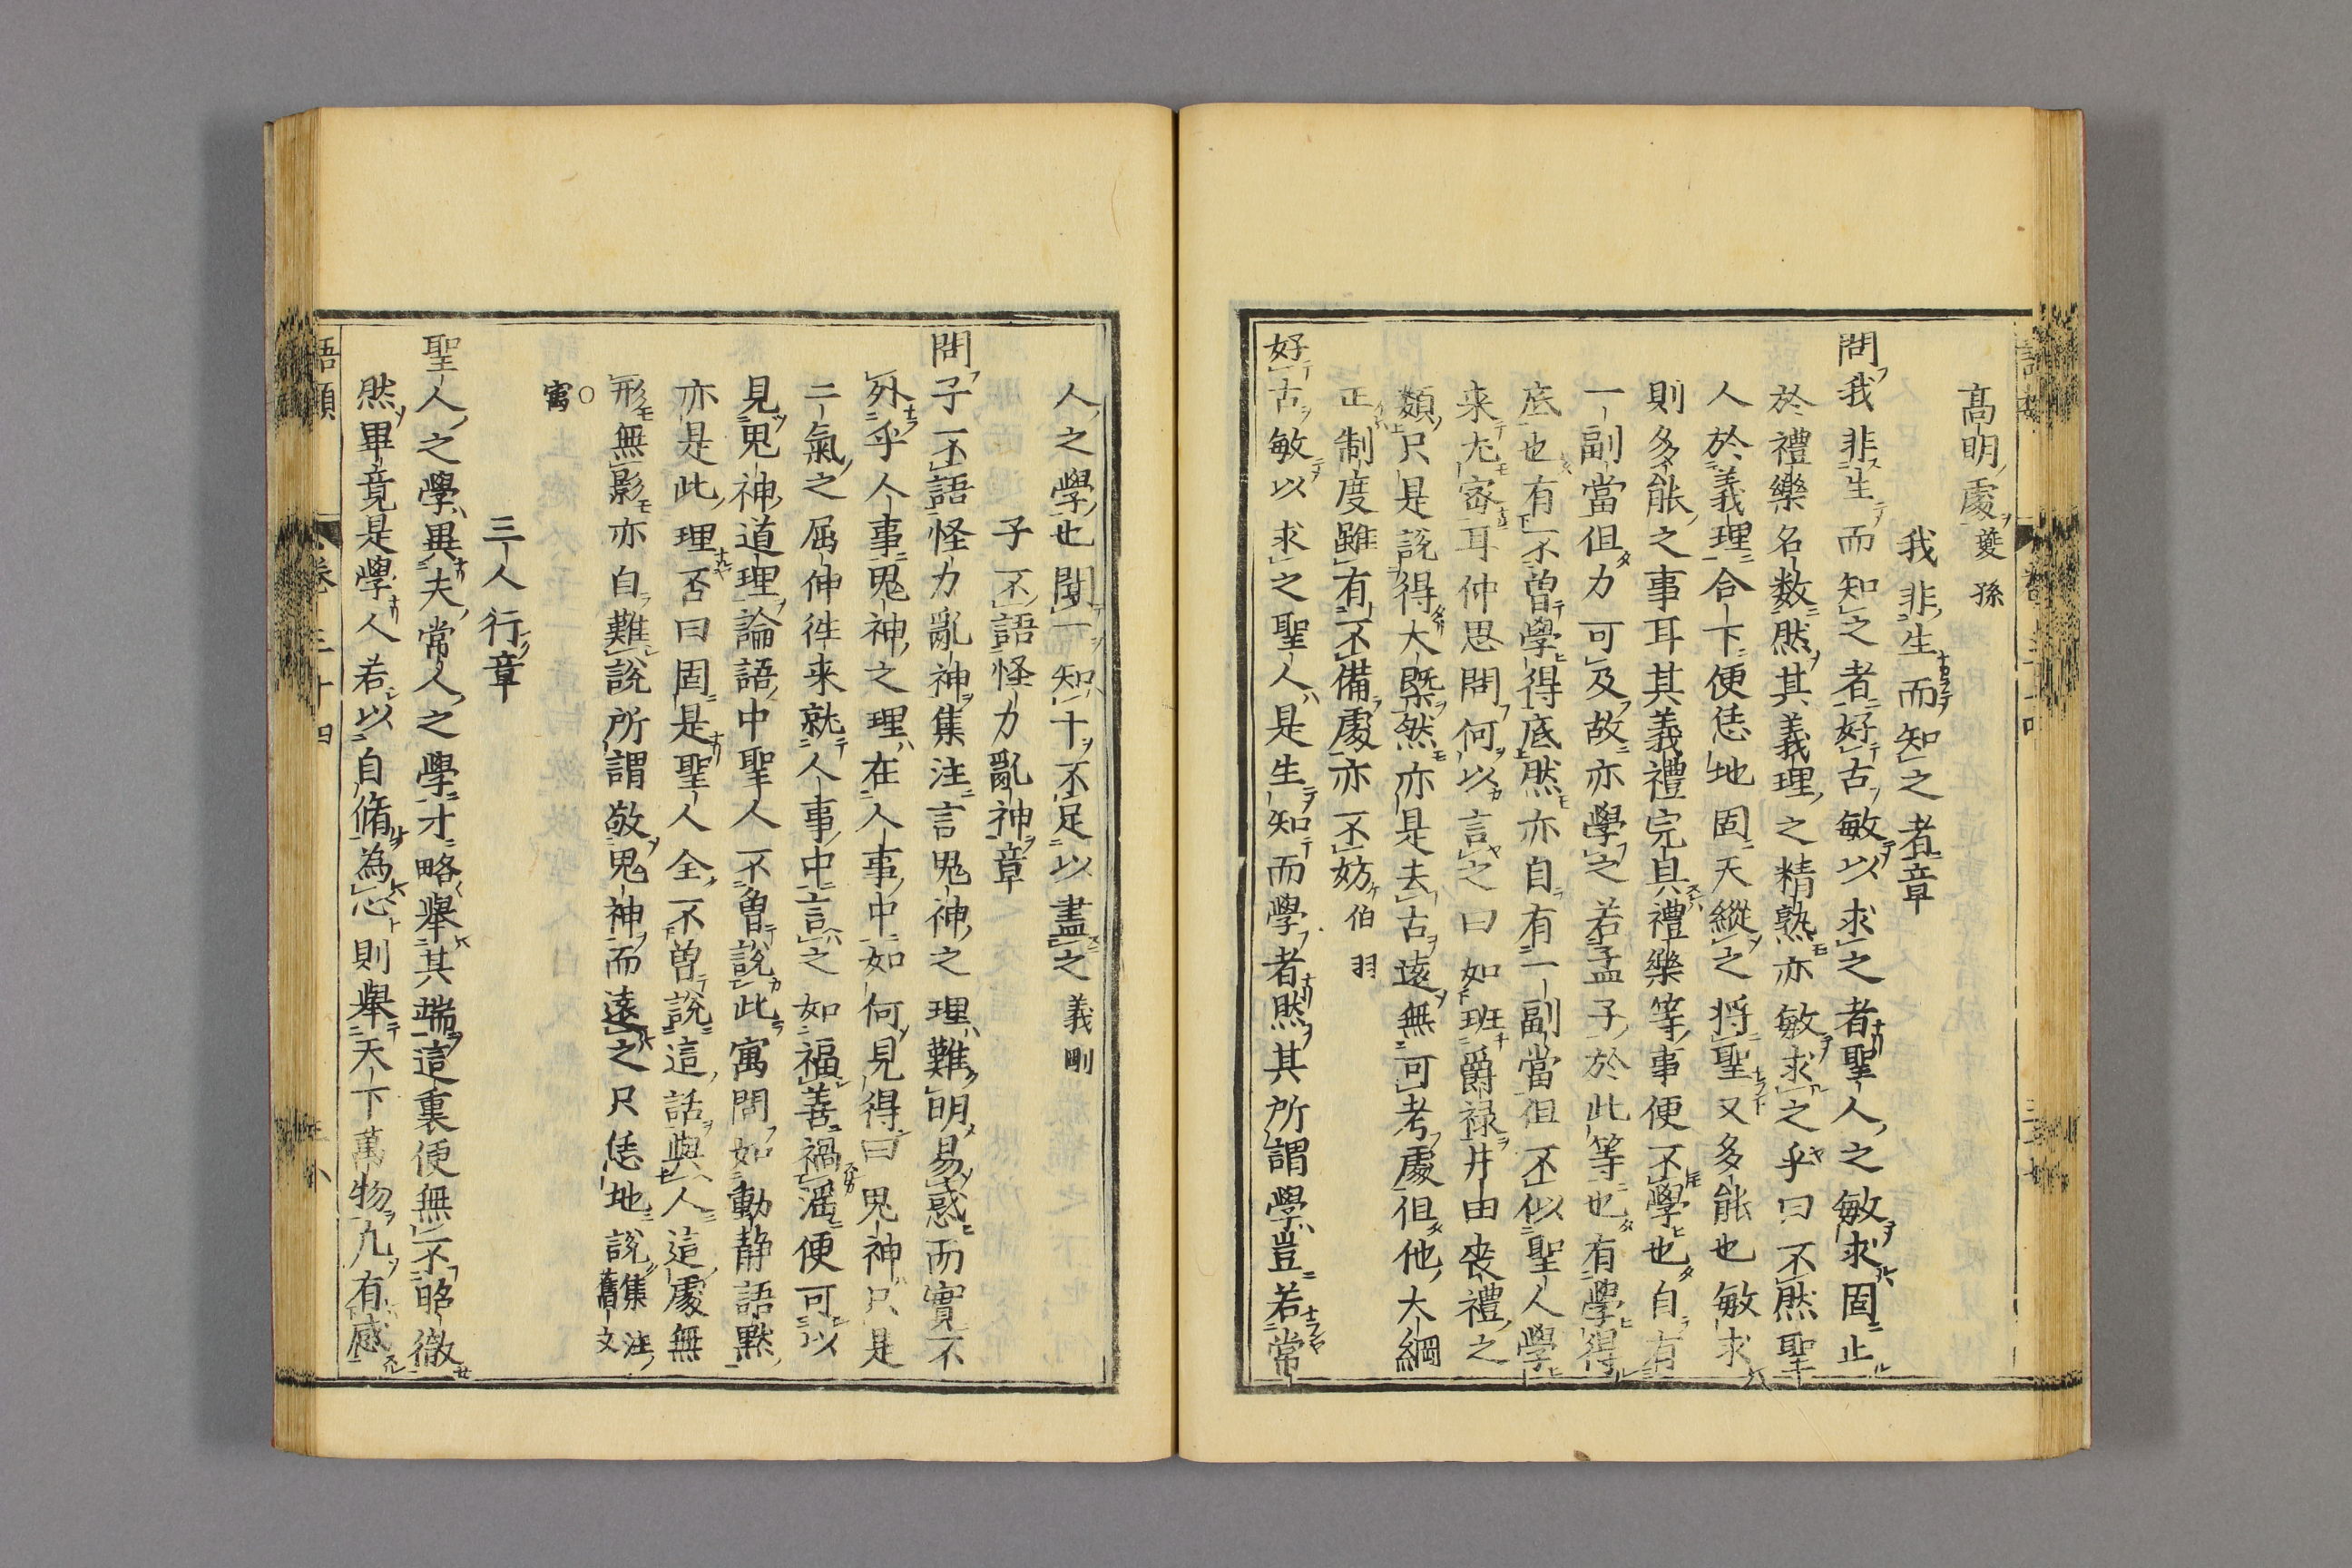 高明處夔孫
我非生而知之者章
問我非生而知之者好古敏以求之者聖人之敏求固止
於禮樂名数然其義理之精熟亦敏求之乎曰不然聖
人於義理合下便恁地固天縱之将聖又多能也敏求
則多能之事耳其義禮完具禮樂等事便不學也自有
一副當但力可及故亦學之若孟子於此等也有學得
底也有不曽學得底然亦自有一副當但不似聖人學
来尤宻耳仲思問何以言之曰如班爵禄井由丧禮之
類只是說得大槩然亦是去古遠無可考處但他大綱
正制度雖有不備處亦不妨伯羽
好古敏以求之聖人是生知而學者然其所謂學豈若常
人之學也聞一知十不足以盡之義剛
子不語怪力亂神章
問子不語怪力亂神集注言鬼神之理難明易惑而實不
外乎人事鬼神之理在人事中如何見得曰鬼神只是
二氣之屈伸徃来就人事中言之如福善禍滛便可以
見鬼神道理論語中聖人不曽說此寓問如動静語黙
亦是此理否曰固是聖人全不曽說這話與人這處無
形無影亦自難說所謂敬鬼神而遠之只恁地說集注舊文
○寓
三人行章
聖人之學異夫常人之學才略舉其端這裏便無不昭徹
然畢竟是學人若以自脩為心則舉天下萬物凡有感
語類 卷三十四